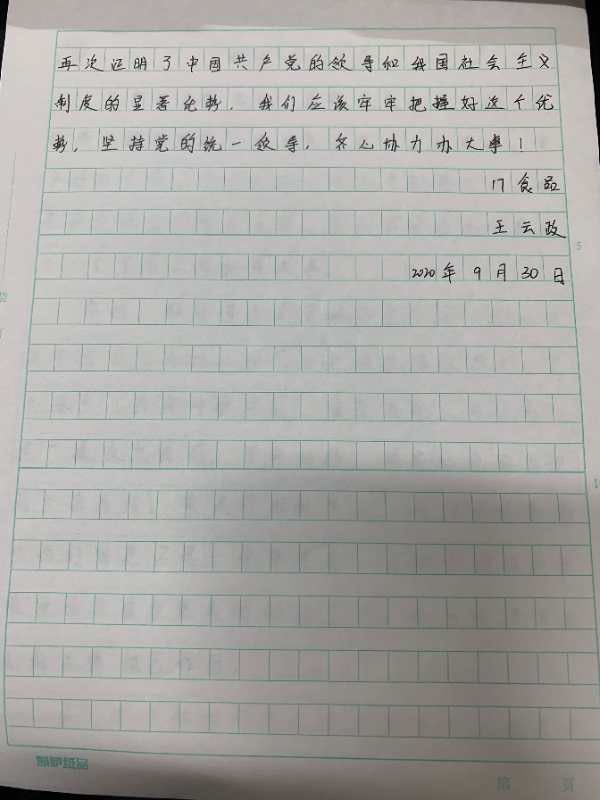 再次证明了中国共产党的领导和我国社会主义
制度的显著优势，我们应该牢牢把握好这个优
势，坚持党的统一领导，齐心协力办大事！
17食品
王云政
2020年9月30日
第 页